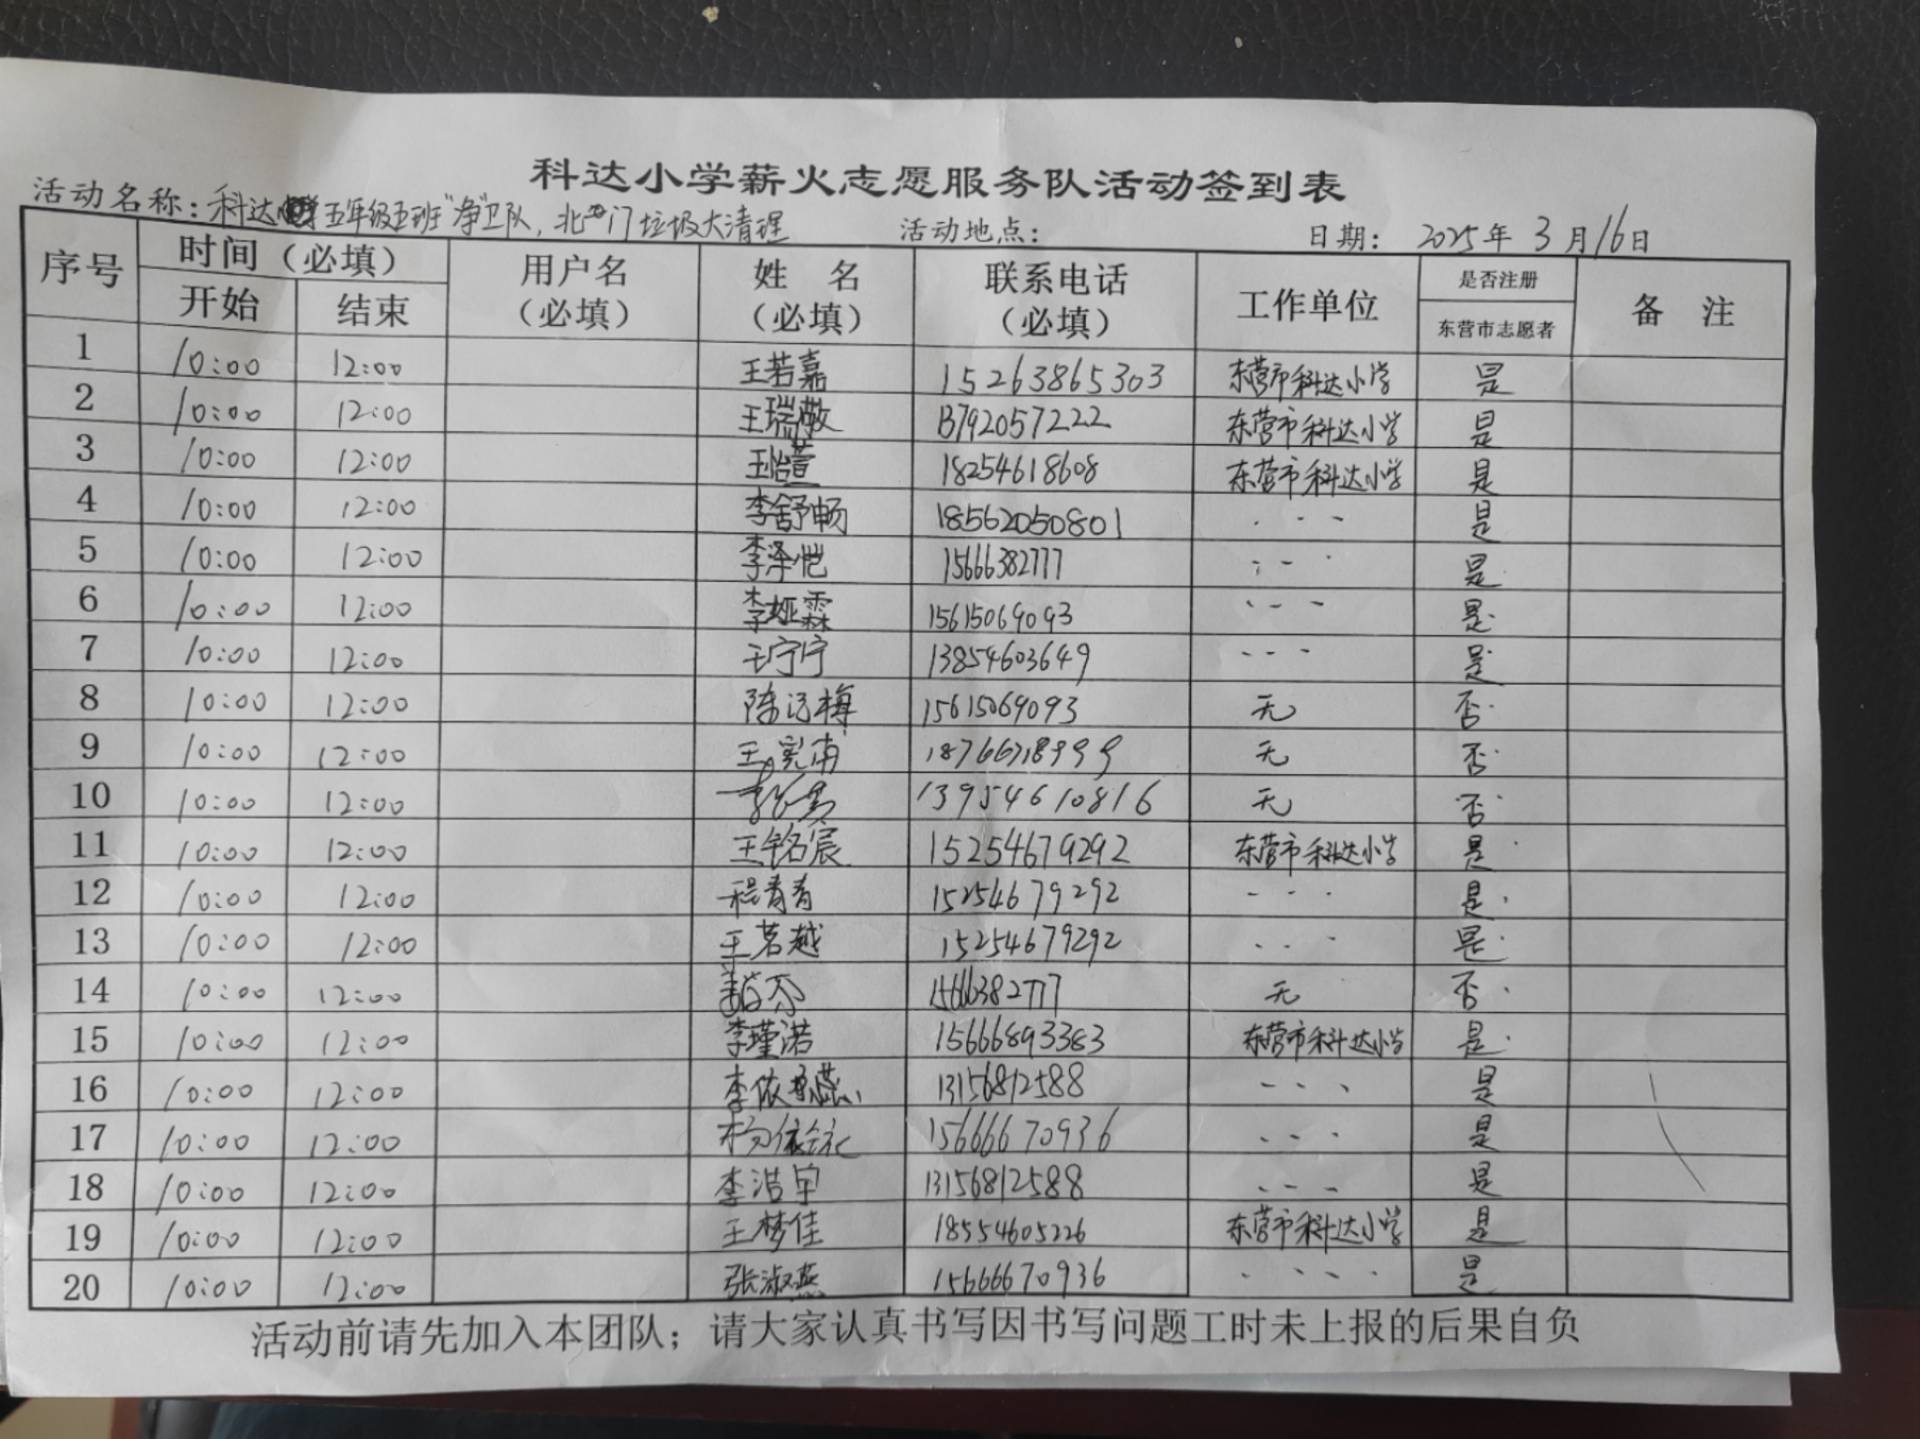 科达小学薪火志愿服务队活动签到表
活动名称：科达小学五年级五班"净"卫队，北门垃圾大清理 活动地点： 日期： 2025年 3 月 16 日
序号 时间（必填） 用户名（必填） 姓 名（必填） 联系电话（必填） 工作单位 是否注册 备 注
开始 结束 东营市志愿者
1 10:00 12:00 王若嘉 15263865303 东营市科达小学 是
2 10:00 12:00 王瑞敬 13792057222 东营市科达小学 是
3 10:00 12:00 王怡萱 18254618608 东营市科达小学 是
4 10:00 12:00 李舒畅 18562050801 是
5 10:00 12:00 李泽恺 15666382777 是
6 10:00 12:00 李娅霖 15615069093 是
7 10:00 12:00 王宁宁 13854603649 是
8 10:00 12:00 陈 梅 15615069093 无 否
9 10:00 12:00 王 南 无 否
10 10:00 12:00 13954610816 无 否
11 10:00 12:00 王铭宸 15254679292 东营市科达小学 是
12 10:00 12:00 程青青 15254679292 是
13 10:00 12:00 王茗越 15254679292 是
14 10:00 12:00 15666382777 无 否
15 10:00 12:00 李瑾诺 15666893383 东营市科达小学 是
16 10:00 12:00 李依 13156812588 是
17 10:00 12:00 杨依 15666670936 是
18 10:00 12:00 李浩宇 13156812588 是
19 10:00 12:00 王梦佳 18554605226 东营市科达小学 是
20 10:00 12:00 张淑燕 15666670936 是
活动前请先加入本团队；请大家认真书写因书写问题工时未上报的后果自负